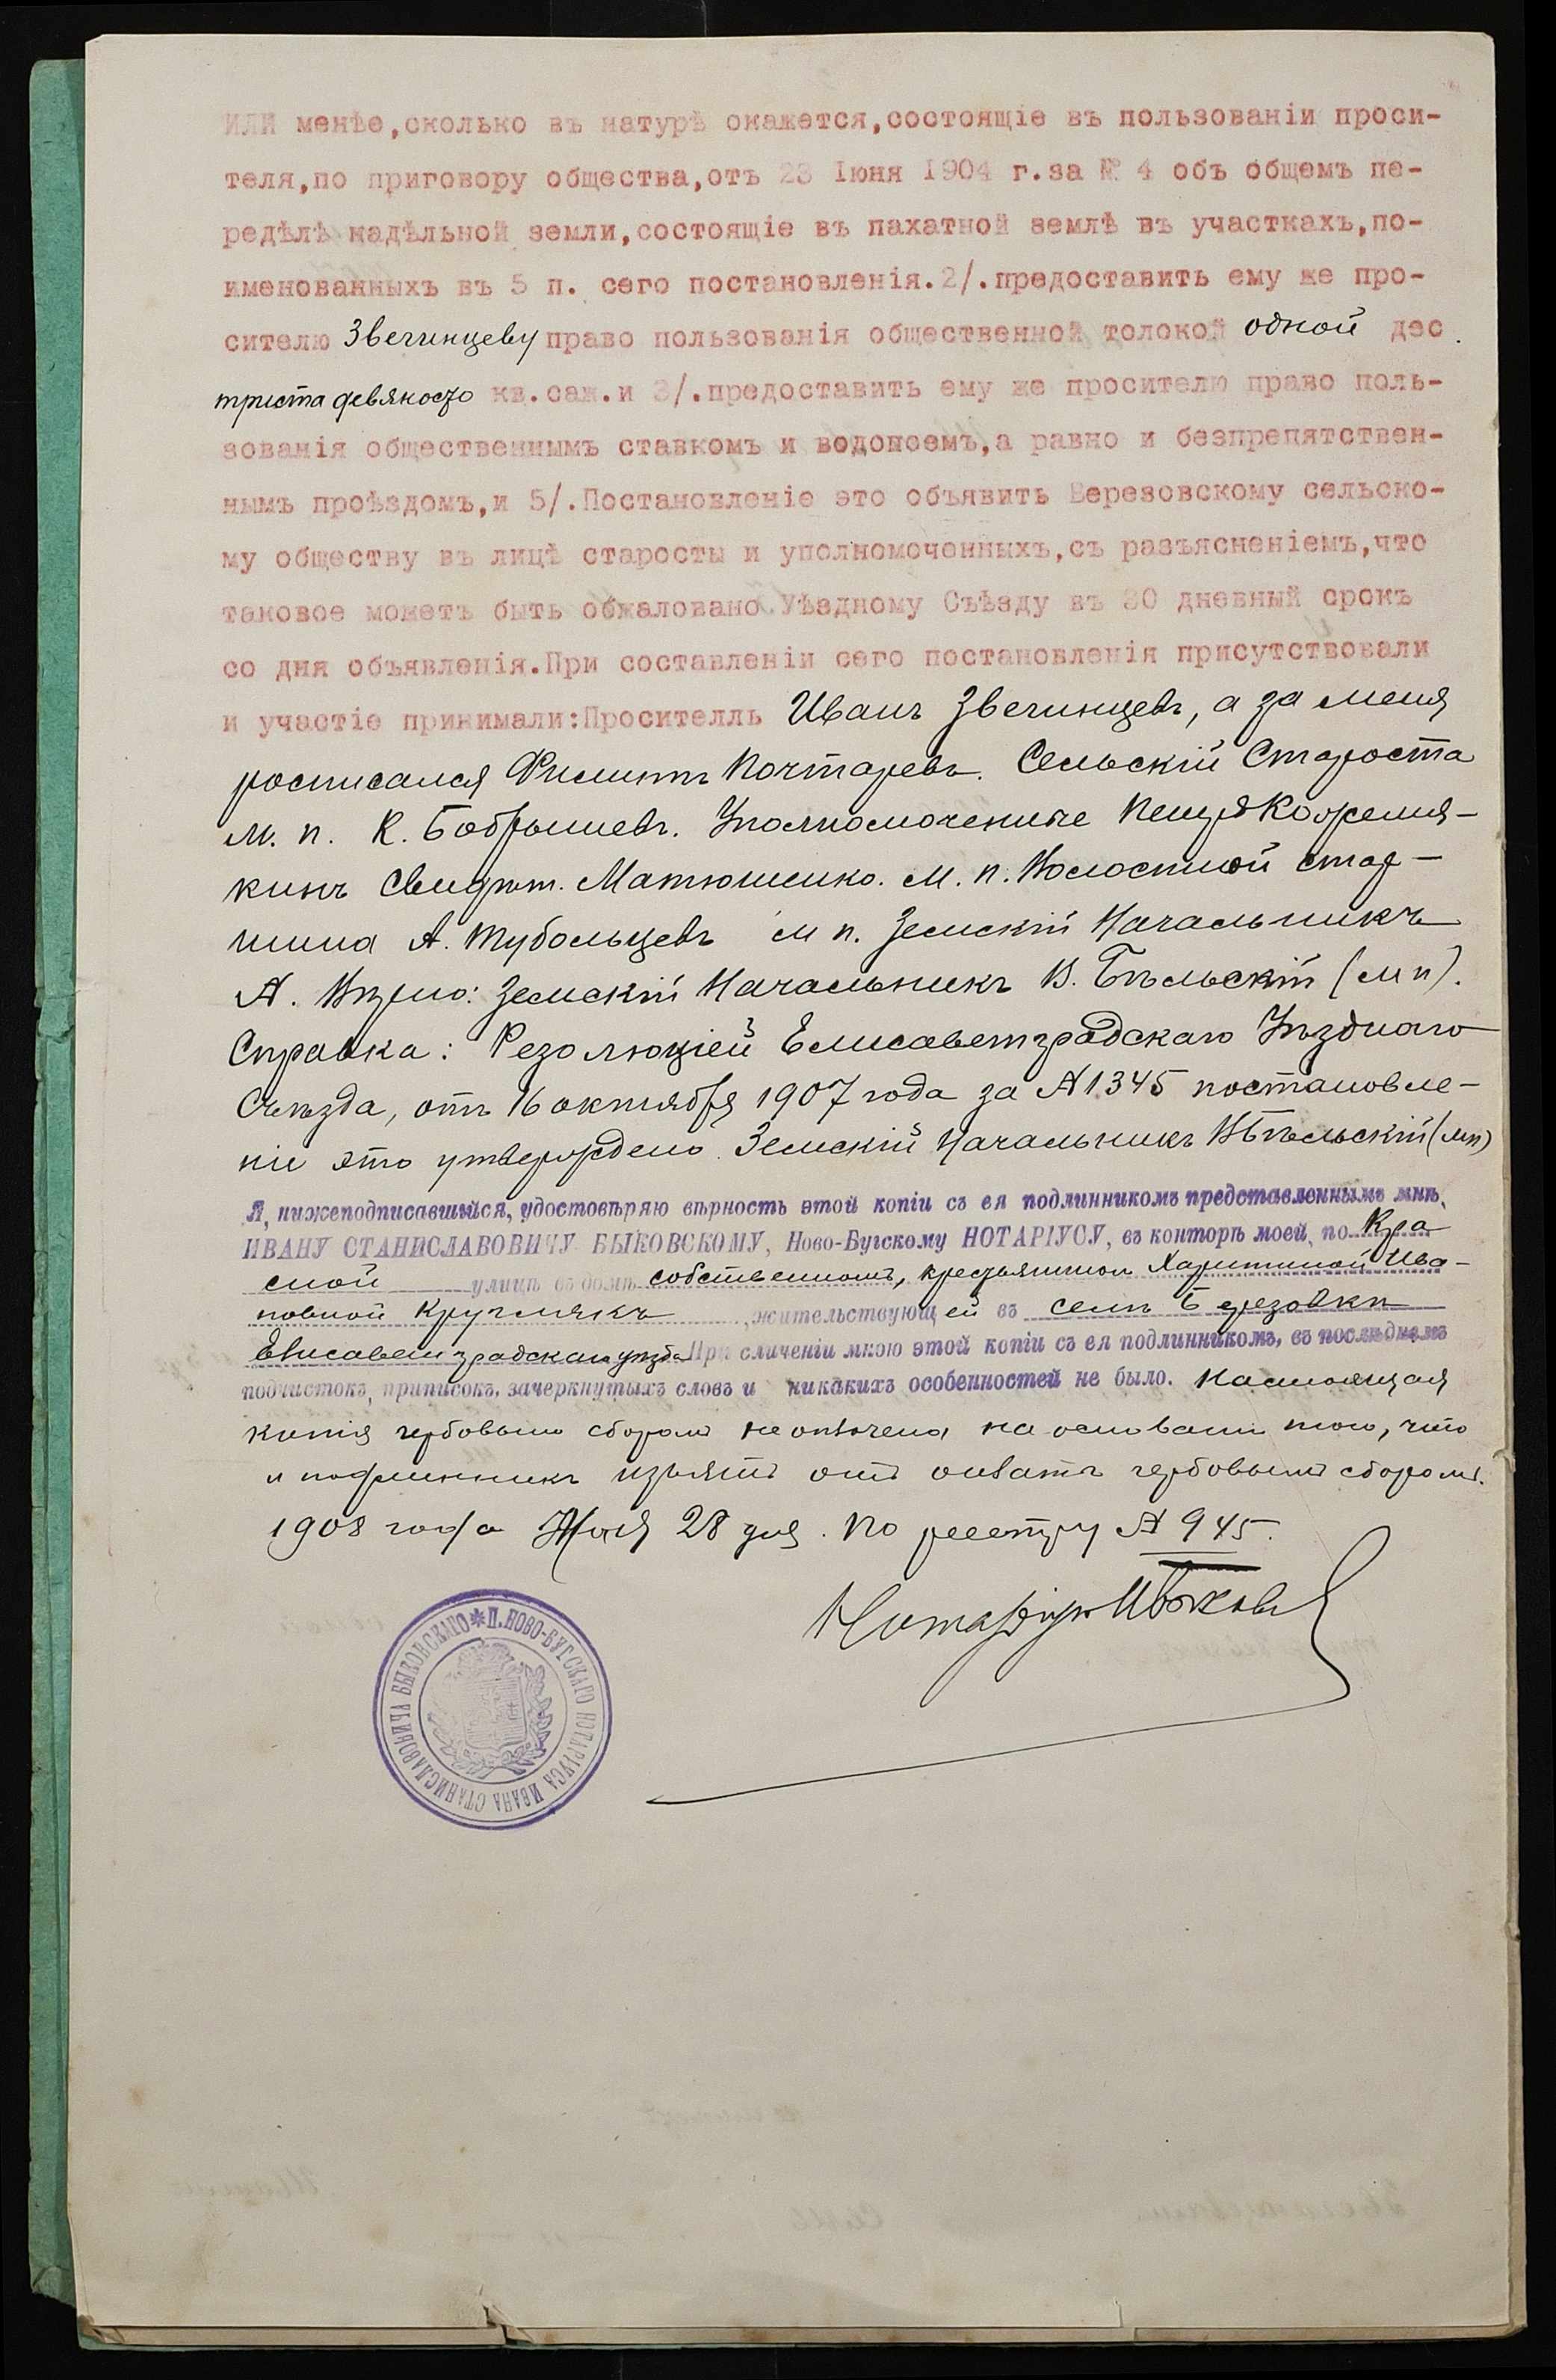 ИЛИ менѣе,сколько въ натурѣ окажется,состоящіе въ пользованіи проси-
теля,по приговору общества,отъ 23 Іюня 1904 г.за № 4 объ общемъ пе-
редѣлѣ надѣльной земли,состоящіе въ пахатной землѣ въ участкахъ,по-
именованныхъ въ 5 п. сего постановленія.2/.предоставить ему же про-
сителю Звегинцеву право пользованія общественной толокой одной дес.
триста девяносто кв.саж.и 3/.предоставить ему же просителю право поль-
зованія общественнымъ ставкомъ и водопоемъ,а равно и безпрепятствен-
нымъ проѣздомъ,и 5/.Постановленіе это объявить Березовскому сельско-
му обществу въ лицѣ старосты и уполномоченныхъ,съ разъясненіемъ,что
таковое можетъ быть обжаловано Уѣздному Съѣзду въ 30 дневный срокъ
со дня объявленія.При составленіи сего постановленія присутствовали
и участіе принимали:Проситеlль Иванъ Звегинцевъ, а за меня
росписался Филиппъ Почтаревъ. Сельскій Староста
м. п. К. Бобрышевъ. Уполномоченные Петръ Кожемя-
кинъ Свидѣт. Матюшенко. м. п. Волостной стар-
шина А. Тубольцевъ м п. Земскій Начальникъ
Вѣрно: Земскій Начальникъ В. Бѣльскій (м п).
Справка: Резолюціей Елисаветградскаго Уѣзднаго
Съѣзда, отъ 16 октября 1907 года за № 1345 постановле-
ніе это утверждено. Земскій Начальникъ В Бѣльскій (мп)
Я, нижеподписавшійся, удостовѣряю вѣрность этой копіи съ ея подлинникомъ представленнымъ мнѣ,
ИВАНУ СТАНИСЛАВОВИЧУ БЫКОВСКОМУ, Ново-Бугскому НОТАРІУСУ, въ конторѣ моей, по Кра
сной улицѣ въ домѣ собственномъ, крестьянкой Харитиной Ива-
новной Кругляка ,жительствующей въ селѣ Березовкѣ
Елисаветградскаго уѣзда При сличеніи мною этой копіи съ ея подлинникомъ, въ послѣднемъ
подчистокъ, приписокъ, зачеркнутыхъ словъ и никакихъ особенностей не было. Настоящая
копія гербовымъ сборомъ не оплочена на основаніи того, что
и подлинникъ изъятъ отъ оплаты гербовымъ сборомъ.
1908 года Мая 28 дня. По реестру № 945.
Нотаріусъ ИБыковскій
П. НОВО-БУГСКАГО НОТАРІУСА ИВАНА СТАНИСЛАВОВИЧА БЫКОВСКАГО